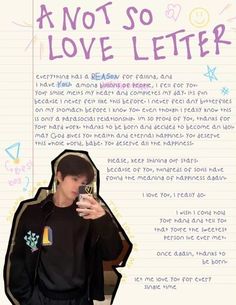 A NOT SO
LOVE LETTER
everything has a REASON for falling, and
I have YOU. among billions of people, I fell for you.
your smile melts my heart and completes my day. it's fun
because I never felt like this before. I never felt any butterflies
on my stomach before I know you even though I really know this
is only a parasocial relationship. im so proud of you, thanks for
your hard work. thanks to be born and decided to become an idol.
may God gives you health and eternal happiness. you deserve
this whole world, babe. you deserve all the happiness.
please, keep shining our stars.
because of you, hundreds of souls have
found the meaning of happiness again.
I love you, I really do.
I wish I could hold
your hand and tell you
that you're the sweetest
person I've ever met.
once again, thanks to
be born.
let me love you for every
single time.